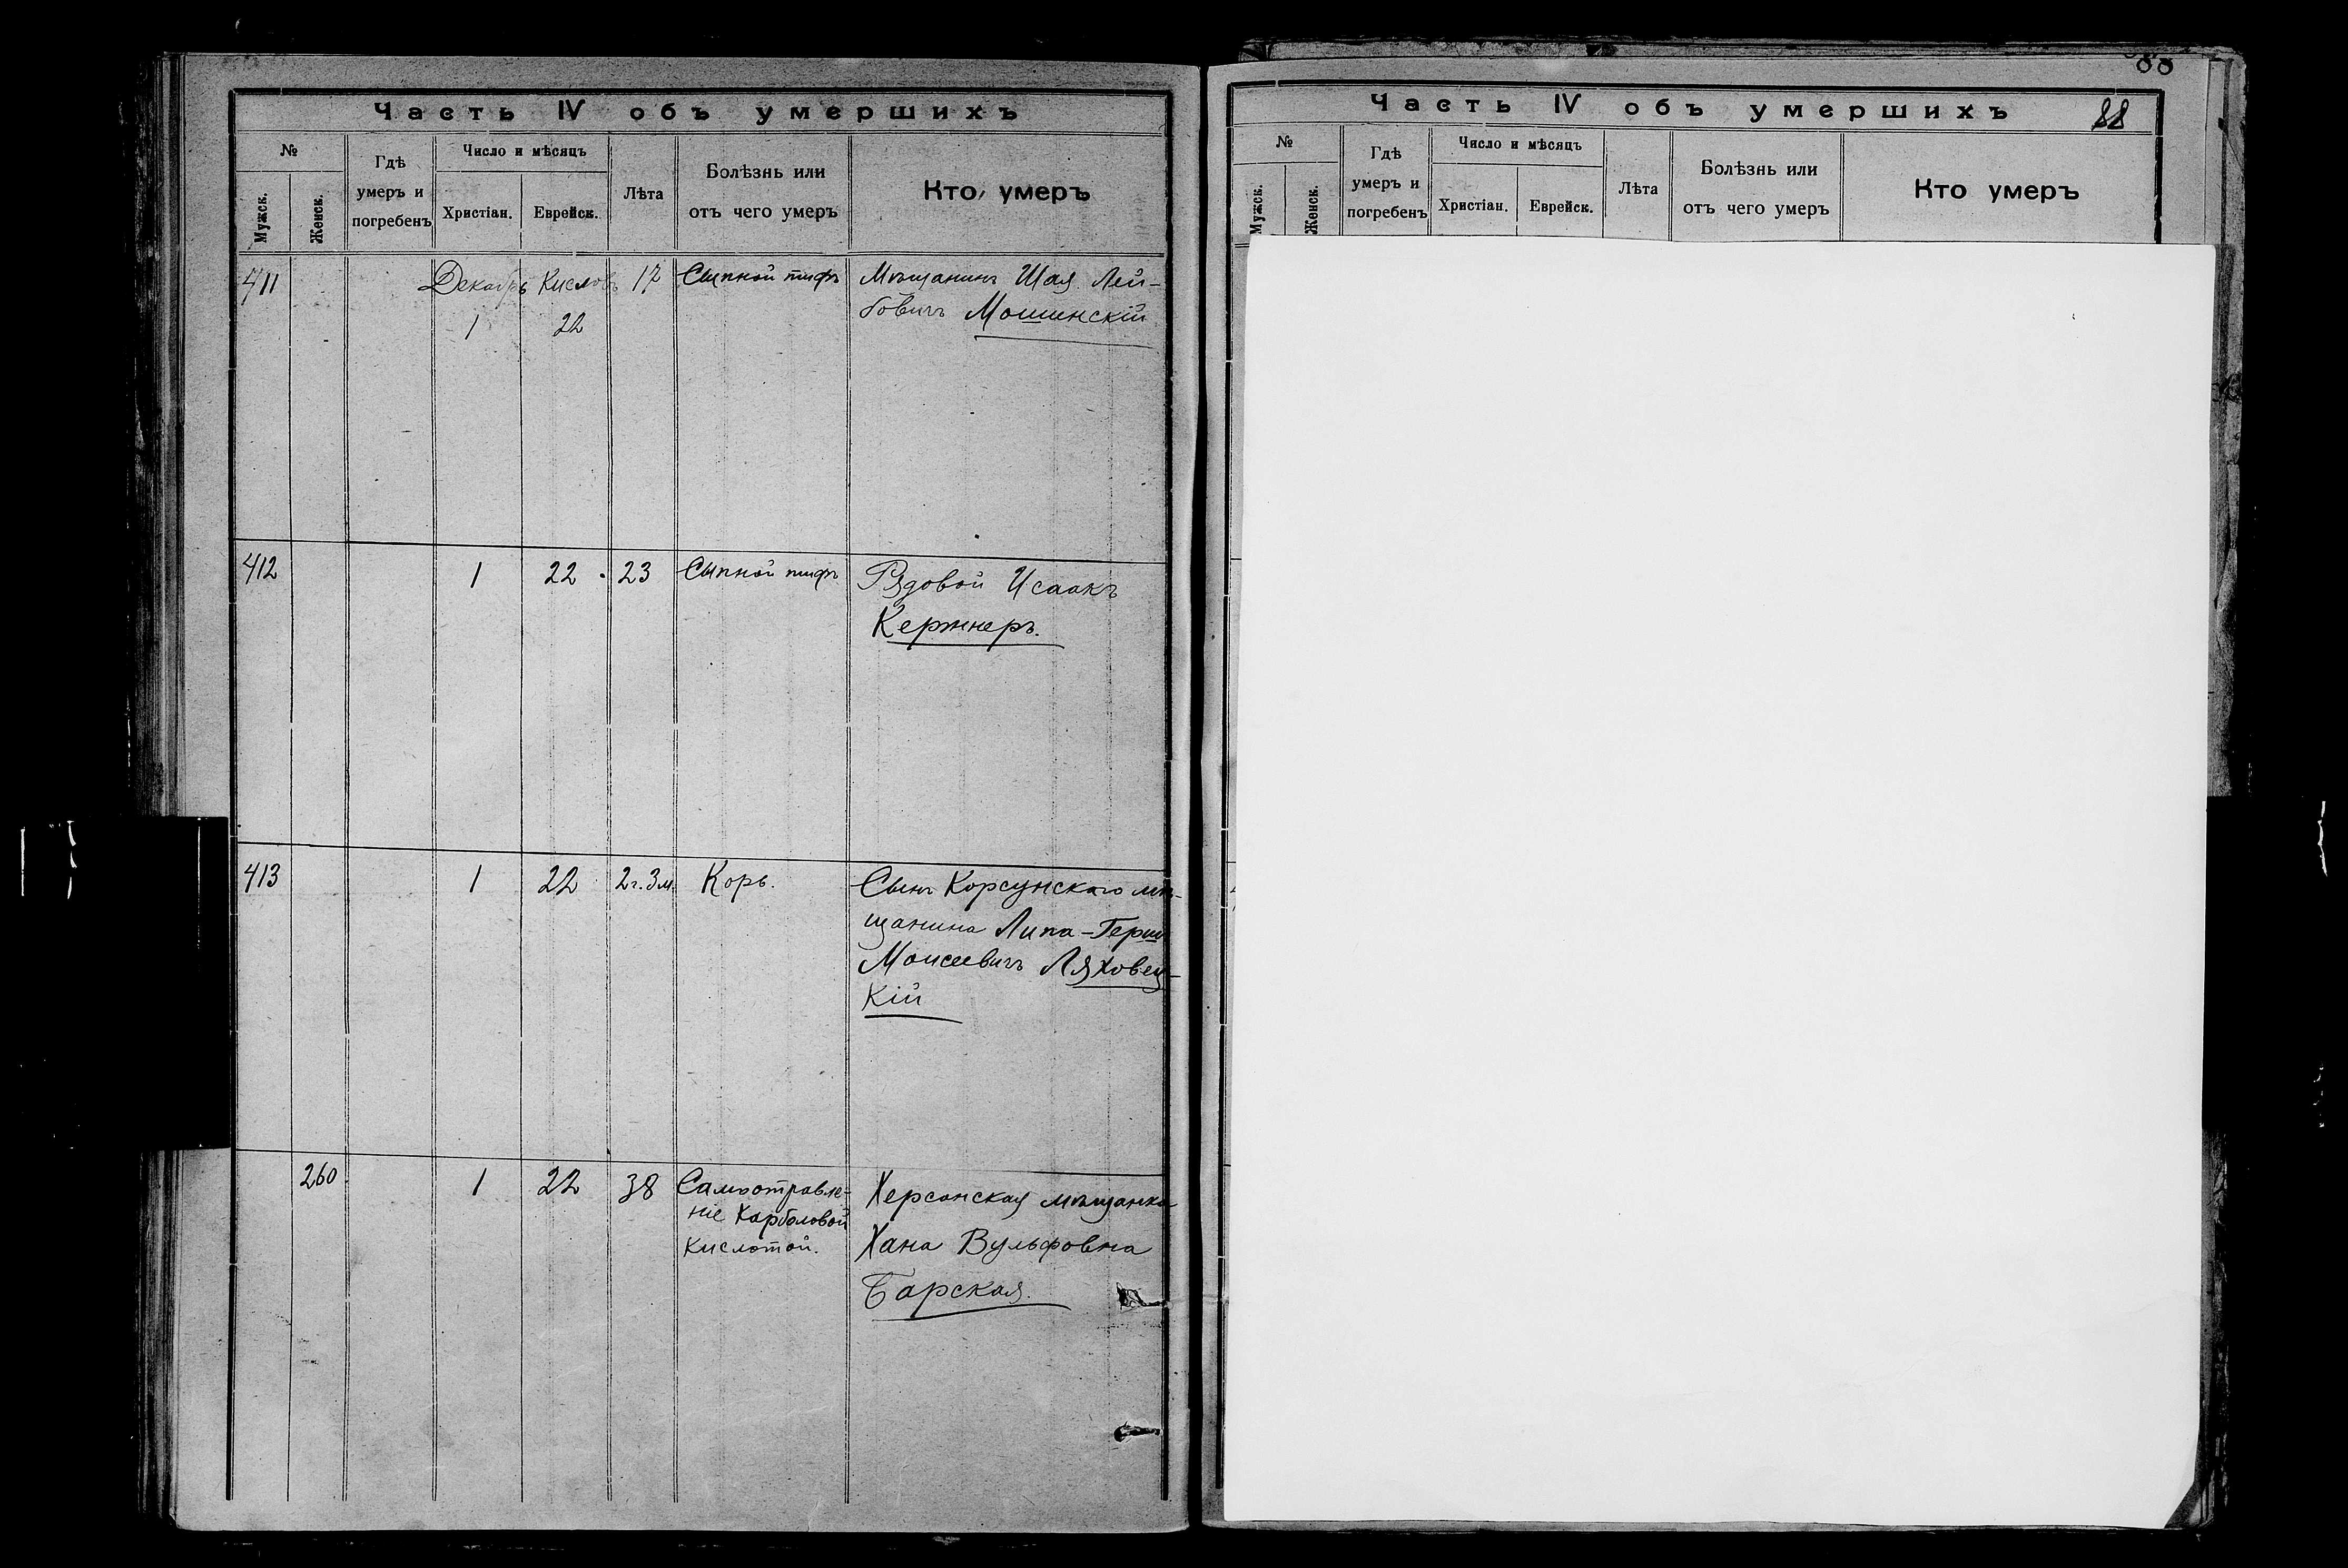 Часть IV объ умершихъ
№
Мужск.
Женск.
Гдѣ
умеръ и
погребенъ
Число и мѣсяцъ
Христіан.
Еврейск.
Лѣта
Болѣзнь или
отъ чего умеръ
Кто умеръ
411
Декабрь
1
Кислов
22
17
Сыпной тифъ
Мѣщанинъ Шая Лей-
бовичъ Мошинскій
412
1
22
23
Сыпной тифъ
Рядовой Исаакъ
Кержнеръ.
413
1
22
2г.3м.
Корь.
Сынъ Корсунскаго мѣ-
щанина Липа-Герш
Моисеевичъ Ляховец-
кій
260
1
22
38
Самоотравле-
ніе Карболовой
кислотой.
Херсонская мѣщанка
Хана Вульфовна
Барская.
88
Часть IV объ умершихъ
№
Мужск.
Женск.
Гдѣ
умеръ и
погребенъ
Число и мѣсяцъ
Христіан.
Еврейск.
Лѣта
Болѣзнь или
отъ чего умеръ
Кто умеръ